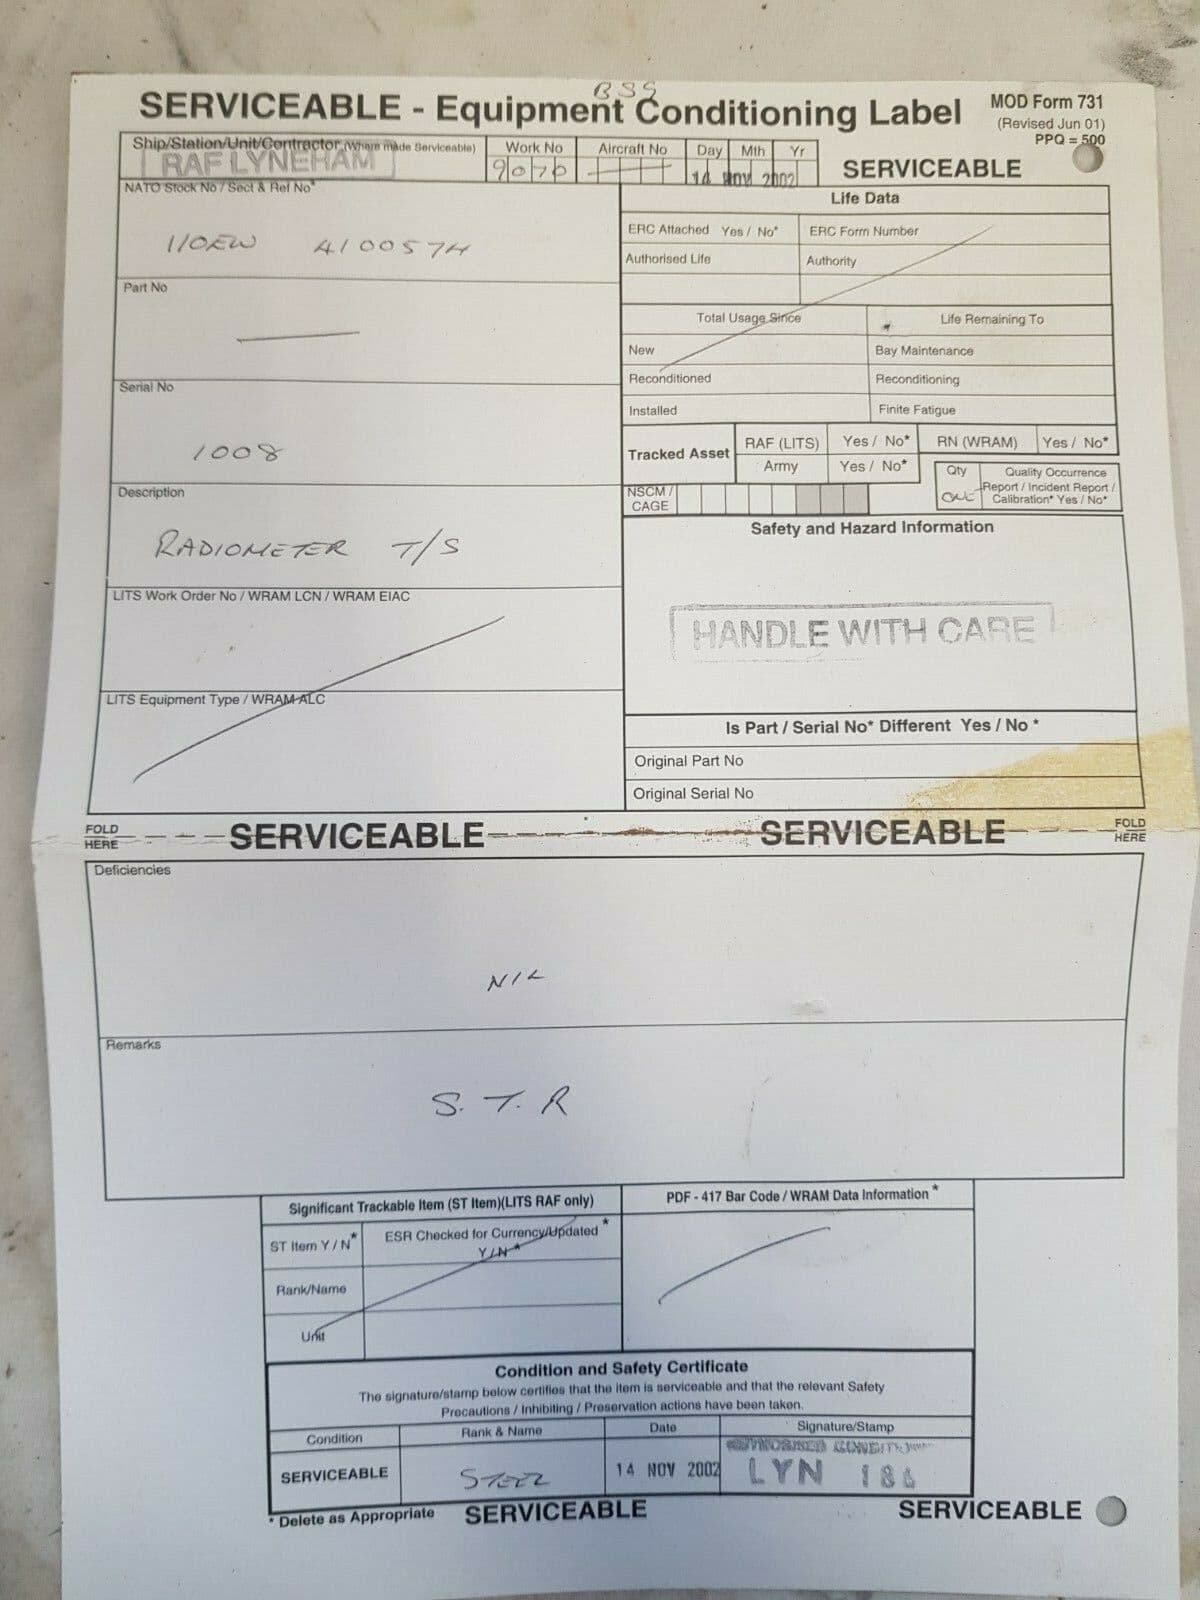 BSS
SERVICEABLE - Equipment Conditioning Label
MOD Form 731
(Revised Jun 01)
PPQ = 500
Ship/Station/Unit/Contractor (Where made Serviceable)
RAF LYNEHAM
Work No
9070
Aircraft No
Day Mth Yr
14 NOV 2002
SERVICEABLE
NATO Stock No / Sect & Ref No*
110EW 4100574
Part No
Serial No
1008
Description
RADIOMETER T/S
LITS Work Order No / WRAM LCN / WRAM EIAC
LITS Equipment Type / WRAM ALC
Life Data
ERC Attached Yes / No*
ERC Form Number
Authorised Life
Authority
Total Usage Since
Life Remaining To
New
Bay Maintenance
Reconditioned
Reconditioning
Installed
Finite Fatigue
Tracked Asset
RAF (LITS) Yes / No*
RN (WRAM) Yes / No*
Army Yes / No*
NSCM /
CAGE
Qty
ONE
Quality Occurrence
Report / Incident Report /
Calibration* Yes / No*
Safety and Hazard Information
HANDLE WITH CARE
Is Part / Serial No* Different Yes / No *
Original Part No
Original Serial No
FOLD
HERE
SERVICEABLE
SERVICEABLE
FOLD
HERE
Deficiencies
NIL
Remarks
S. T. R
Significant Trackable Item (ST Item)(LITS RAF only)
PDF - 417 Bar Code / WRAM Data Information *
ST Item Y / N*
ESR Checked for Currency/Updated *
Y/N *
Rank/Name
Unit
Condition and Safety Certificate
The signature/stamp below certifies that the item is serviceable and that the relevant Safety
Precautions / Inhibiting / Preservation actions have been taken.
Condition
Rank & Name
Date
Signature/Stamp
SERVICEABLE
14 NOV 2002
LYN
* Delete as Appropriate
SERVICEABLE
SERVICEABLE